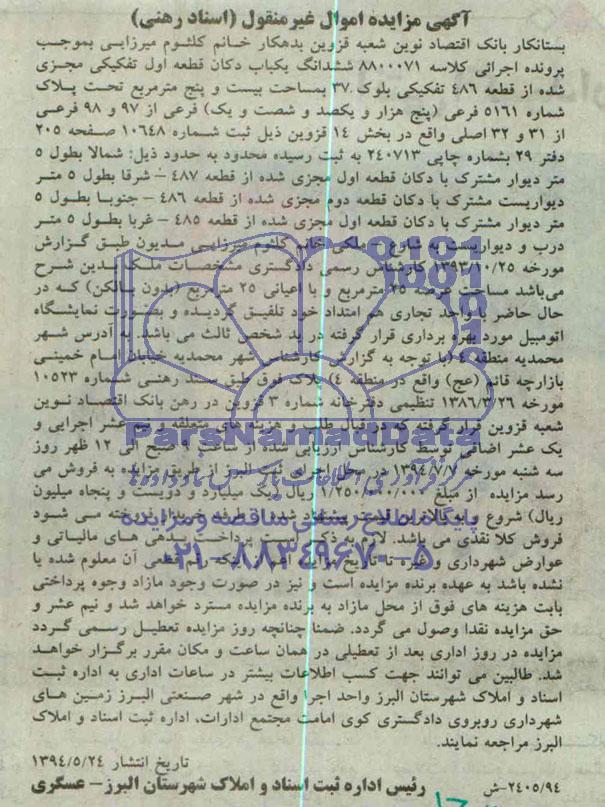 آگهی مزایده اموال غیرمنقول (اسناد رهنی)
بستانکار بانک اقتصاد نوین شعبه قزوین بدهکار خانم کلثوم میرزایی بموجب
پرونده اجرائی کلاسه ۸۸۰۰۰۷۱ ششدانگ یکباب دکان قطعه اول تفکیکی مجزی
شده از قطعه ۴۸۶ تفکیکی بلوک ۳۷ بمساحت بیست و پنج مترمربع تحت پلاک
شماره ۵۱۶۱ فرعی (پنج هزار و یکصد و شصت و یک) فرعی از ۹۷ و ۹۸ فرعی
از ۳۱ و ۳۲ اصلی واقع در بخش ۱۴ قزوین ذیل ثبت شماره ۱۰۶۴۸ صفحه ۲۰۵
دفتر ۲۹ بشماره چاپی ۲۴۰۷۱۳ به ثبت رسیده محدود به حدود ذیل: شمالا بطول ۵
متر دیوار مشترک با دکان قطعه اول مجزی شده از قطعه ۴۸۷ – شرقا بطول ۵ متر
دیواریست مشترک با دکان قطعه دوم مجزی شده از قطعه ۴۸۶ – جنوبا بطول ۵
متر دیوار مشترک با دکان قطعه اول مجزی شده از قطعه ۴۸۵ – غربا بطول ۵ متر
درب و دیواریست به شارع – ملکی خانم کلثوم میرزایی مدیون طبق گزارش
مورخه ۱۳۹۳/۱۰/۲۵ کارشناس رسمی دادگستری مشخصات ملک بدین شرح
می‌باشد مساحت عرصه ۲۵ مترمربع و با اعیانی ۲۵ مترمربع (بدون بالکن) که در
حال حاضر با واحد تجاری هم امتداد خود تلفیق گردیده و بصورت نمایشگاه
اتومبیل مورد بهره برداری قرار گرفته در ید شخص ثالث می باشد. به آدرس شهر
محمدیه منطقه ۴ (با توجه به گزارش کارشناس شهر محمدیه خیابان امام خمینی
بازارچه قائم (عج) واقع در منطقه ۴) پلاک فوق طبق سند رهنی شماره ۱۰۵۲۳
مورخه ۱۳۸۶/۳/۲۶ تنظیمی دفترخانه شماره ۳ قزوین در رهن بانک اقتصاد نوین
شعبه قزوین قرار گرفته که در قبال طلب و هزینه های متعلقه و نیم عشر اجرایی و
یک عشر اضافی توسط کارشناس ارزیابی شده از ساعت ۹ صبح الی ۱۲ ظهر روز
سه شنبه مورخه ۱۳۹۴/۷/۷ در محل اجرای ثبت البرز از طریق مزایده به فروش می
رسد مزایده از مبلغ ۱/۲۵۰/۰۰۰/۰۰۰ ریال (یک میلیارد و دویست و پنجاه میلیون
ریال) شروع و به بالاترین قیمت پیشنهاد شده از طرف خریدار فروخته می شود
فروش کلا نقدی می باشد. لازم به ذکر است پرداخت بدهی های مالیاتی و
عوارض شهرداری و غیره تا تاریخ مزایده اعم از اینکه رقم قطعی آن معلوم شده یا
نشده باشد به عهده برنده مزایده است و نیز در صورت وجود مازاد وجوه پرداختی
بابت هزینه های فوق از محل مازاد به برنده مزایده مسترد خواهد شد و نیم عشر و
حق مزایده نقدا وصول می گردد. ضمنا چنانچه روز مزایده تعطیل رسمی گردد
مزایده در روز اداری بعد از تعطیلی در همان ساعت و مکان مقرر برگزار خواهد
شد. طالبین می توانند جهت کسب اطلاعات بیشتر در ساعات اداری به اداره ثبت
اسناد و املاک شهرستان البرز واحد اجرا واقع در شهر صنعتی البرز زمین های
شهرداری روبروی دادگستری کوی امامت مجتمع ادارات، اداره ثبت اسناد و املاک
البرز مراجعه نمایند.
تاریخ انتشار ۱۳۹۴/۵/۲۴
رئیس اداره ثبت اسناد و املاک شهرستان البرز – عسگری
۲۴۰۵/۹۴-ش
ParsNamadData
مرکز فرآوری اطلاعات پارس نماد داده‌ها
پایگاه اطلاع رسانی مناقصه و مزایده
۰۲۱-۸۸۳۴۹۶۷۰-۵